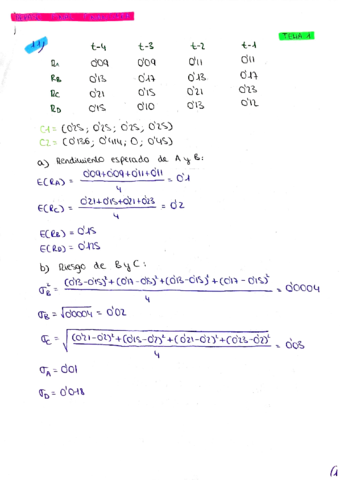 TEMA 1
11)
t-4 t-3 t-2 t-1
RA 0'09 0'09 0'11 0'11
RB 0'13 0'17 0'13 0'17
RC 0'21 0'15 0'21 0'23
RD 0'15 0'10 0'13 0'12
C1 = (0'25; 0'25; 0'25, 0'25)
C2 = (0'136; 0'414; 0; 0'45)
a) Rendimiento esperado de A y B:
E(RA) = 0'09+0'09+0'11+0'11 / 4 = 0'1
E(RC) = 0'21+0'15+0'21+0'23 / 4 = 0'2
E(RB) = 0'15
E(RD) = 0'125
b) Riesgo de B y C:
σ²B = (0'13-0'15)²+(0'17-0'15)²+(0'13-0'15)²+(0'17-0'15)² / 4 = 0'0004
σB = √0'0004 = 0'02
σC = √(0'21-0'2)²+(0'15-0'2)²+(0'21-0'2)²+(0'23-0'2)² / 4 = 0'03
σA = 0'01
σD = 0'018